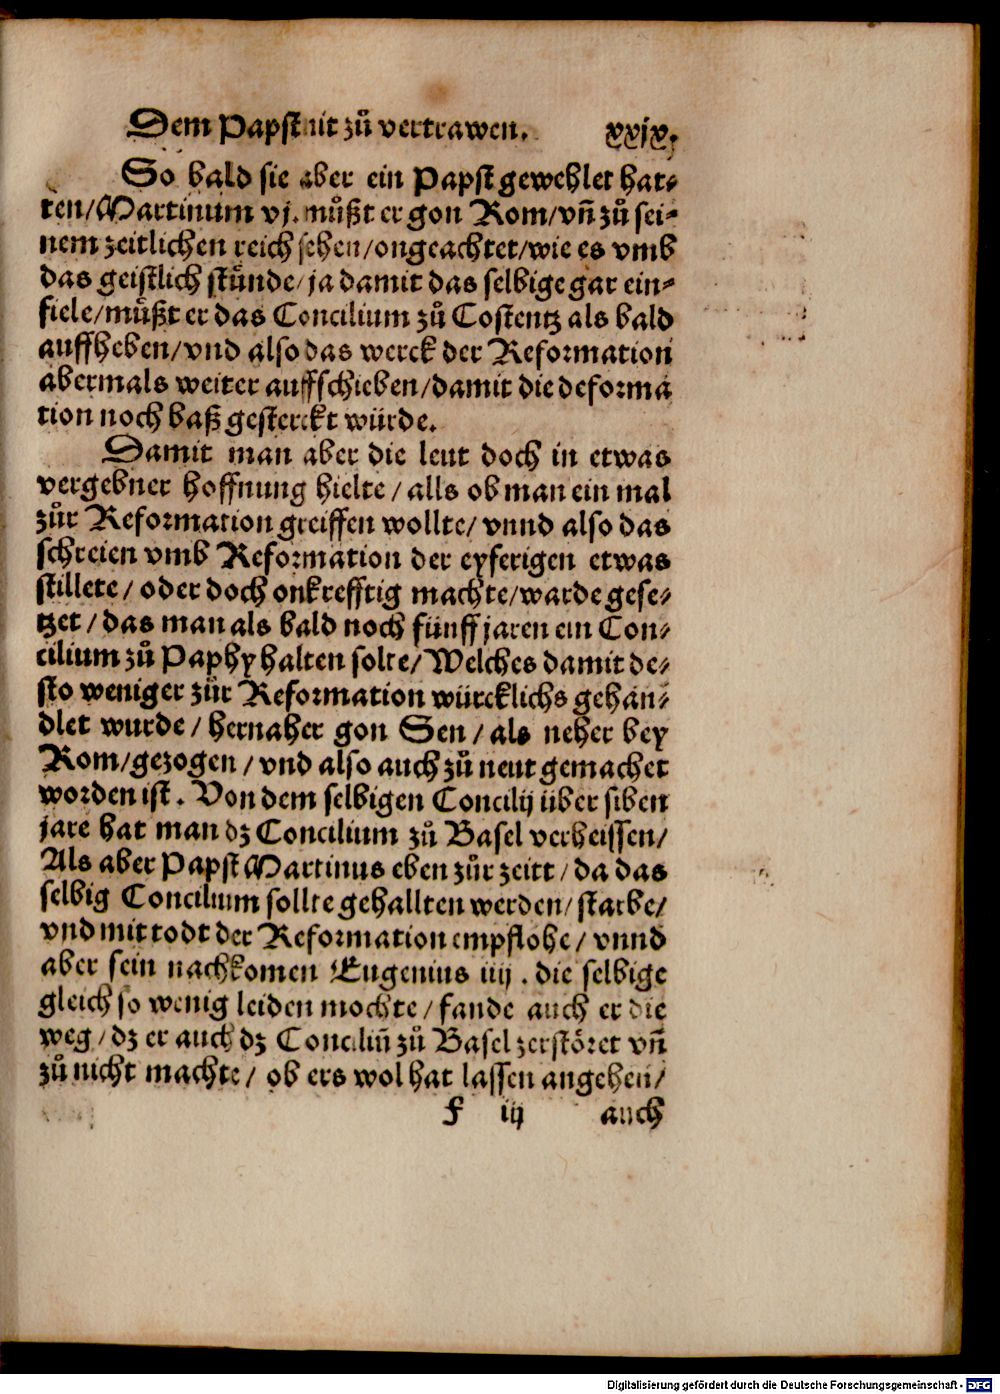 Dem Papst nit zů vertrawen. xxjx.
So bald sie aber ein Papst gewehlet hat⸗
ten/Martinum vj. můßt er gon Rom/vñ zů sei⸗
nem zeitlichen reich sehen/ongeachtet/wie es vmb
das geistlich stünde/ja damit das selbige gar ein⸗
fiele/můßt er das Concilium zů Costentz als bald
auffheben/vnd also das werck der Reformation
abermals weiter auffschieben/damit die deforma
tion noch baß gesterckt würde.
Damit man aber die leut doch in etwas
vergebner hoffnung hielte/alls ob man ein mal
zůr Reformation greiffen wollte/vnnd also das
schreien vmb Reformation der eyferigen etwas
stillete/oder doch onkrefftig machte/warde gese⸗
tzet/das man als bald noch fünff jaren ein Con⸗
cilium zů Paphy halten solte/Welches damit de⸗
sto weniger zůr Reformation würcklichs gehan⸗
dlet wurde/hernaher gon Sen/als neher bey
Rom/gezogen/vnd also auch zů neut gemachet
worden ist. Von dem selbigen Concilij über siben
jare hat man dz Concilium zů Basel verheissen/
Als aber Papst Martinus eben zůr zeitt/da das
selbig Concilium sollte gehallten werden/starbe/
vnd mit todt der Reformation empflohe/vnnd
aber sein nachkomen Eugenius iiij. die selbige
gleich so wenig leiden mochte/fande auch er die
weg/dz er auch dz Conciliũ zů Basel zerstöret vñ
zů nicht machte/ob ers wol hat lassen angehen/
f iij auch
Digitalisierung gefördert durch die Deutsche Forschungsgemeinschaft - DFG